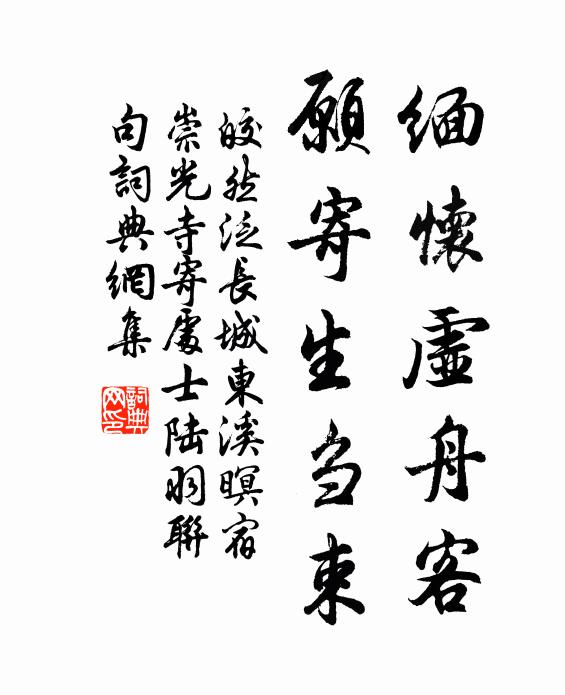 緬懷虛舟客
願寄生芻束
皎然泛長城東溪暝宿
崇光寺寄處士陸羽聯
句詞典網集
詞典
网印